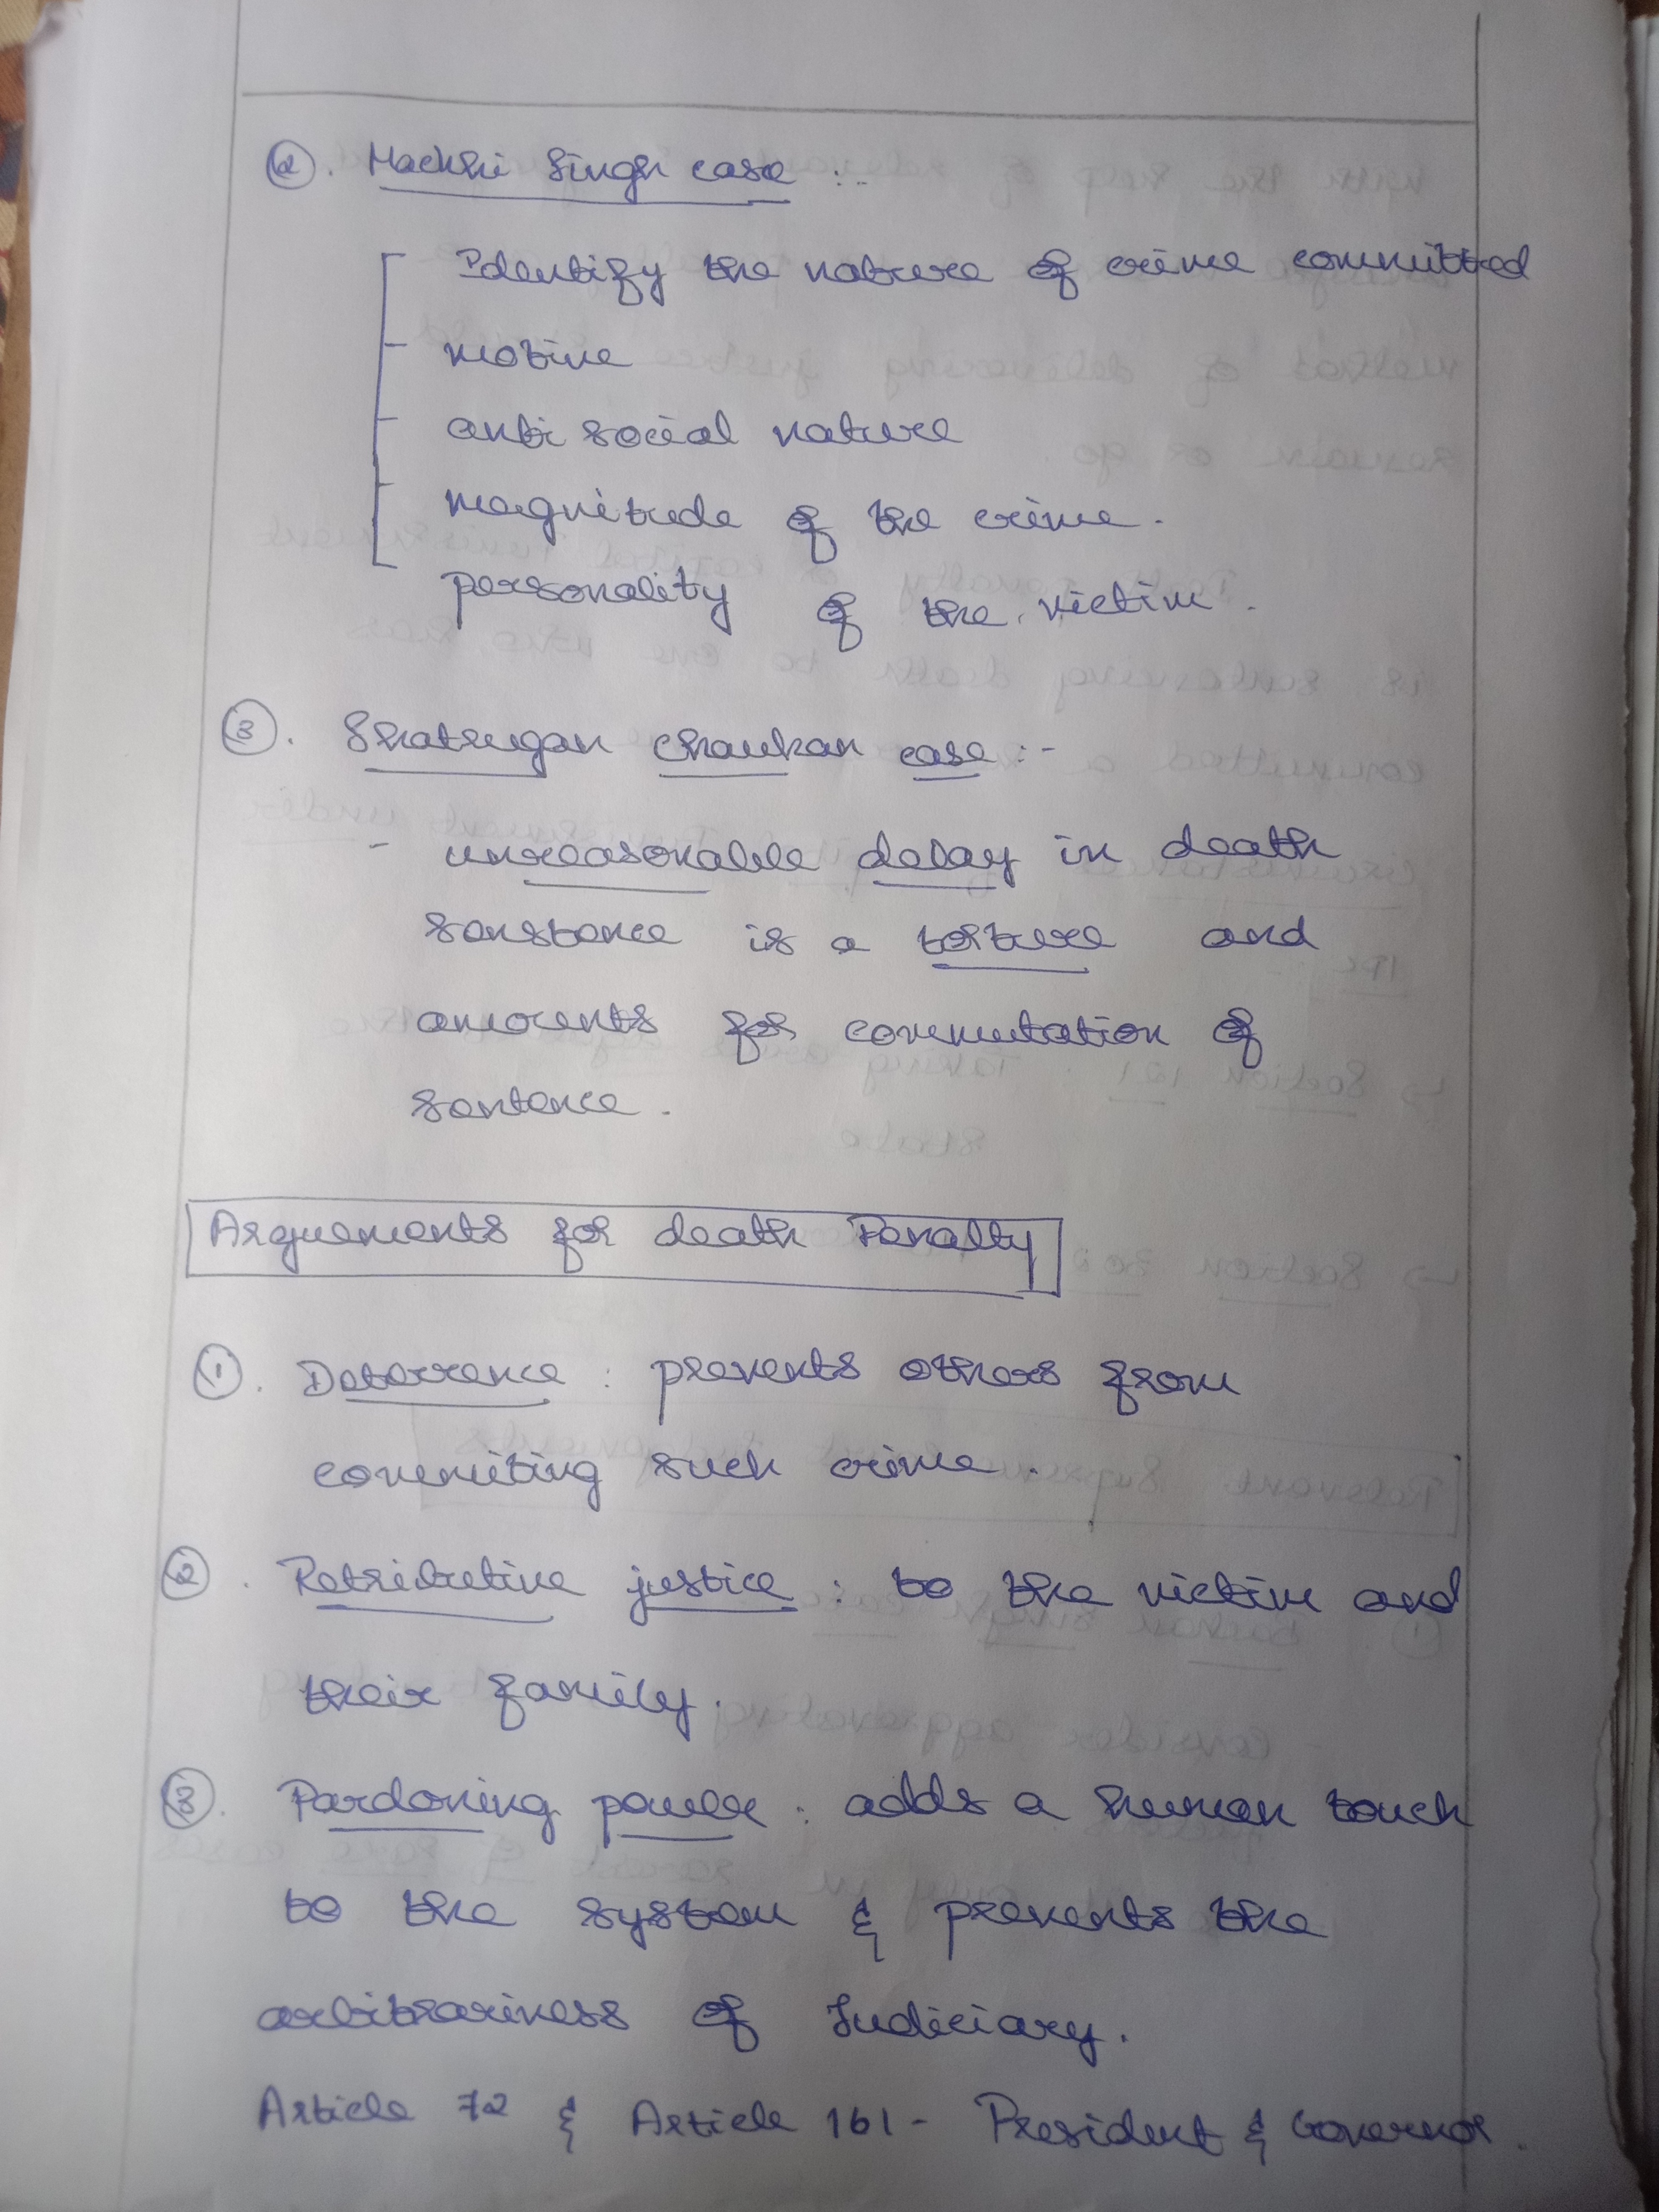 2. Machhi Singh case :-
Identify the nature of crime committed
motive
anti social nature
magnitude of the crime.
personality of the victim.
3. Shatrugan Chauhan case :-
- unreasonable delay in death
senstence is a torture and
amounts for commutation of
sentence.
Arguements for death Penalty
1. Deterrence : prevents others from
commiting such crime.
2. Retributive justice : to the victim and
their family.
3. Pardoning power : adds a human touch
to the system & prevents the
arbitrariness of Judiciary.
Article 72 & Article 161 - President & Governor.